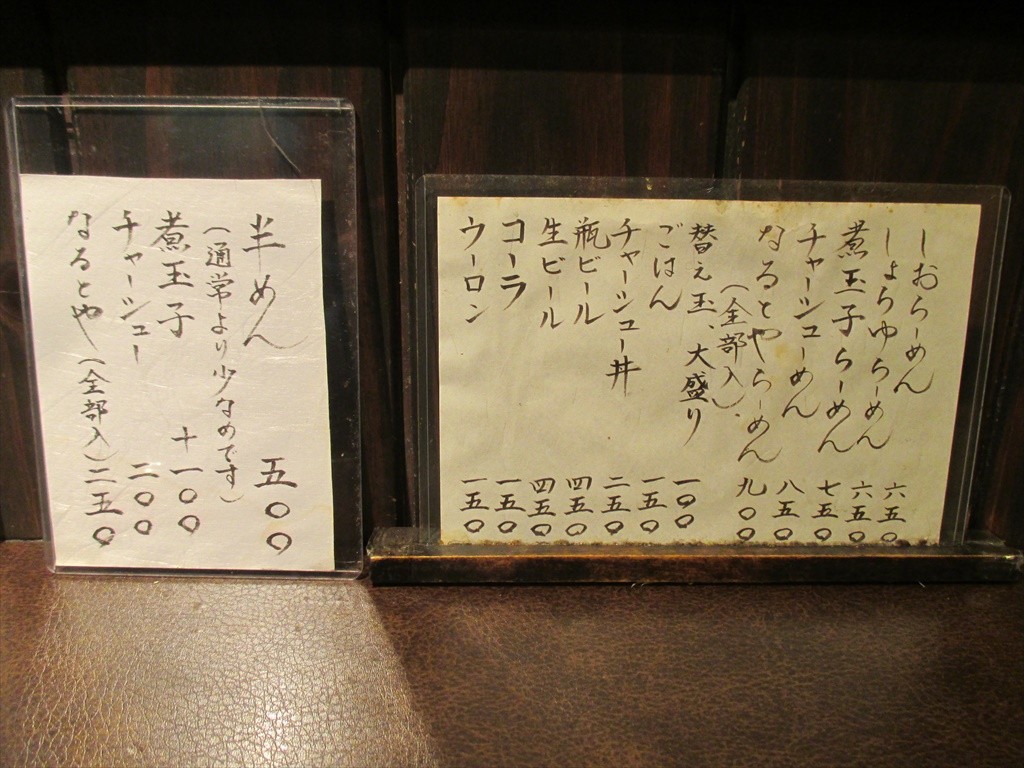 しおらーめん 六五〇
しょうゆらーめん 六五〇
煮玉子らーめん 七五〇
チャーシューめん 八五〇
なるとやらーめん 九〇〇
(全部入)
替え玉、大盛り 一〇〇
ごはん 一五〇
チャーシュー丼 二五〇
瓶ビール 四五〇
生ビール 四五〇
コーラ 一五〇
ウーロン 一五〇
半めん 五〇〇
(通常より少なめです)
煮玉子 +一〇〇
チャーシュー 二〇〇
なるとや(全部入)二五〇